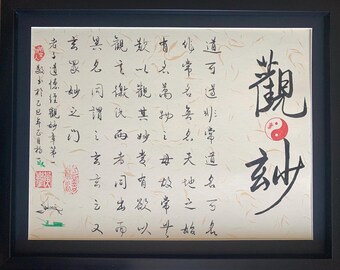 觀妙
道可道非常道名可名
非常名無名天地之始
有名萬物之母故常無
欲以觀其妙常有欲以
觀其徼此兩者同出而
異名同謂之玄玄之又
玄眾妙之門
老子道德經觀妙章第一
敬書於乙巳年正月